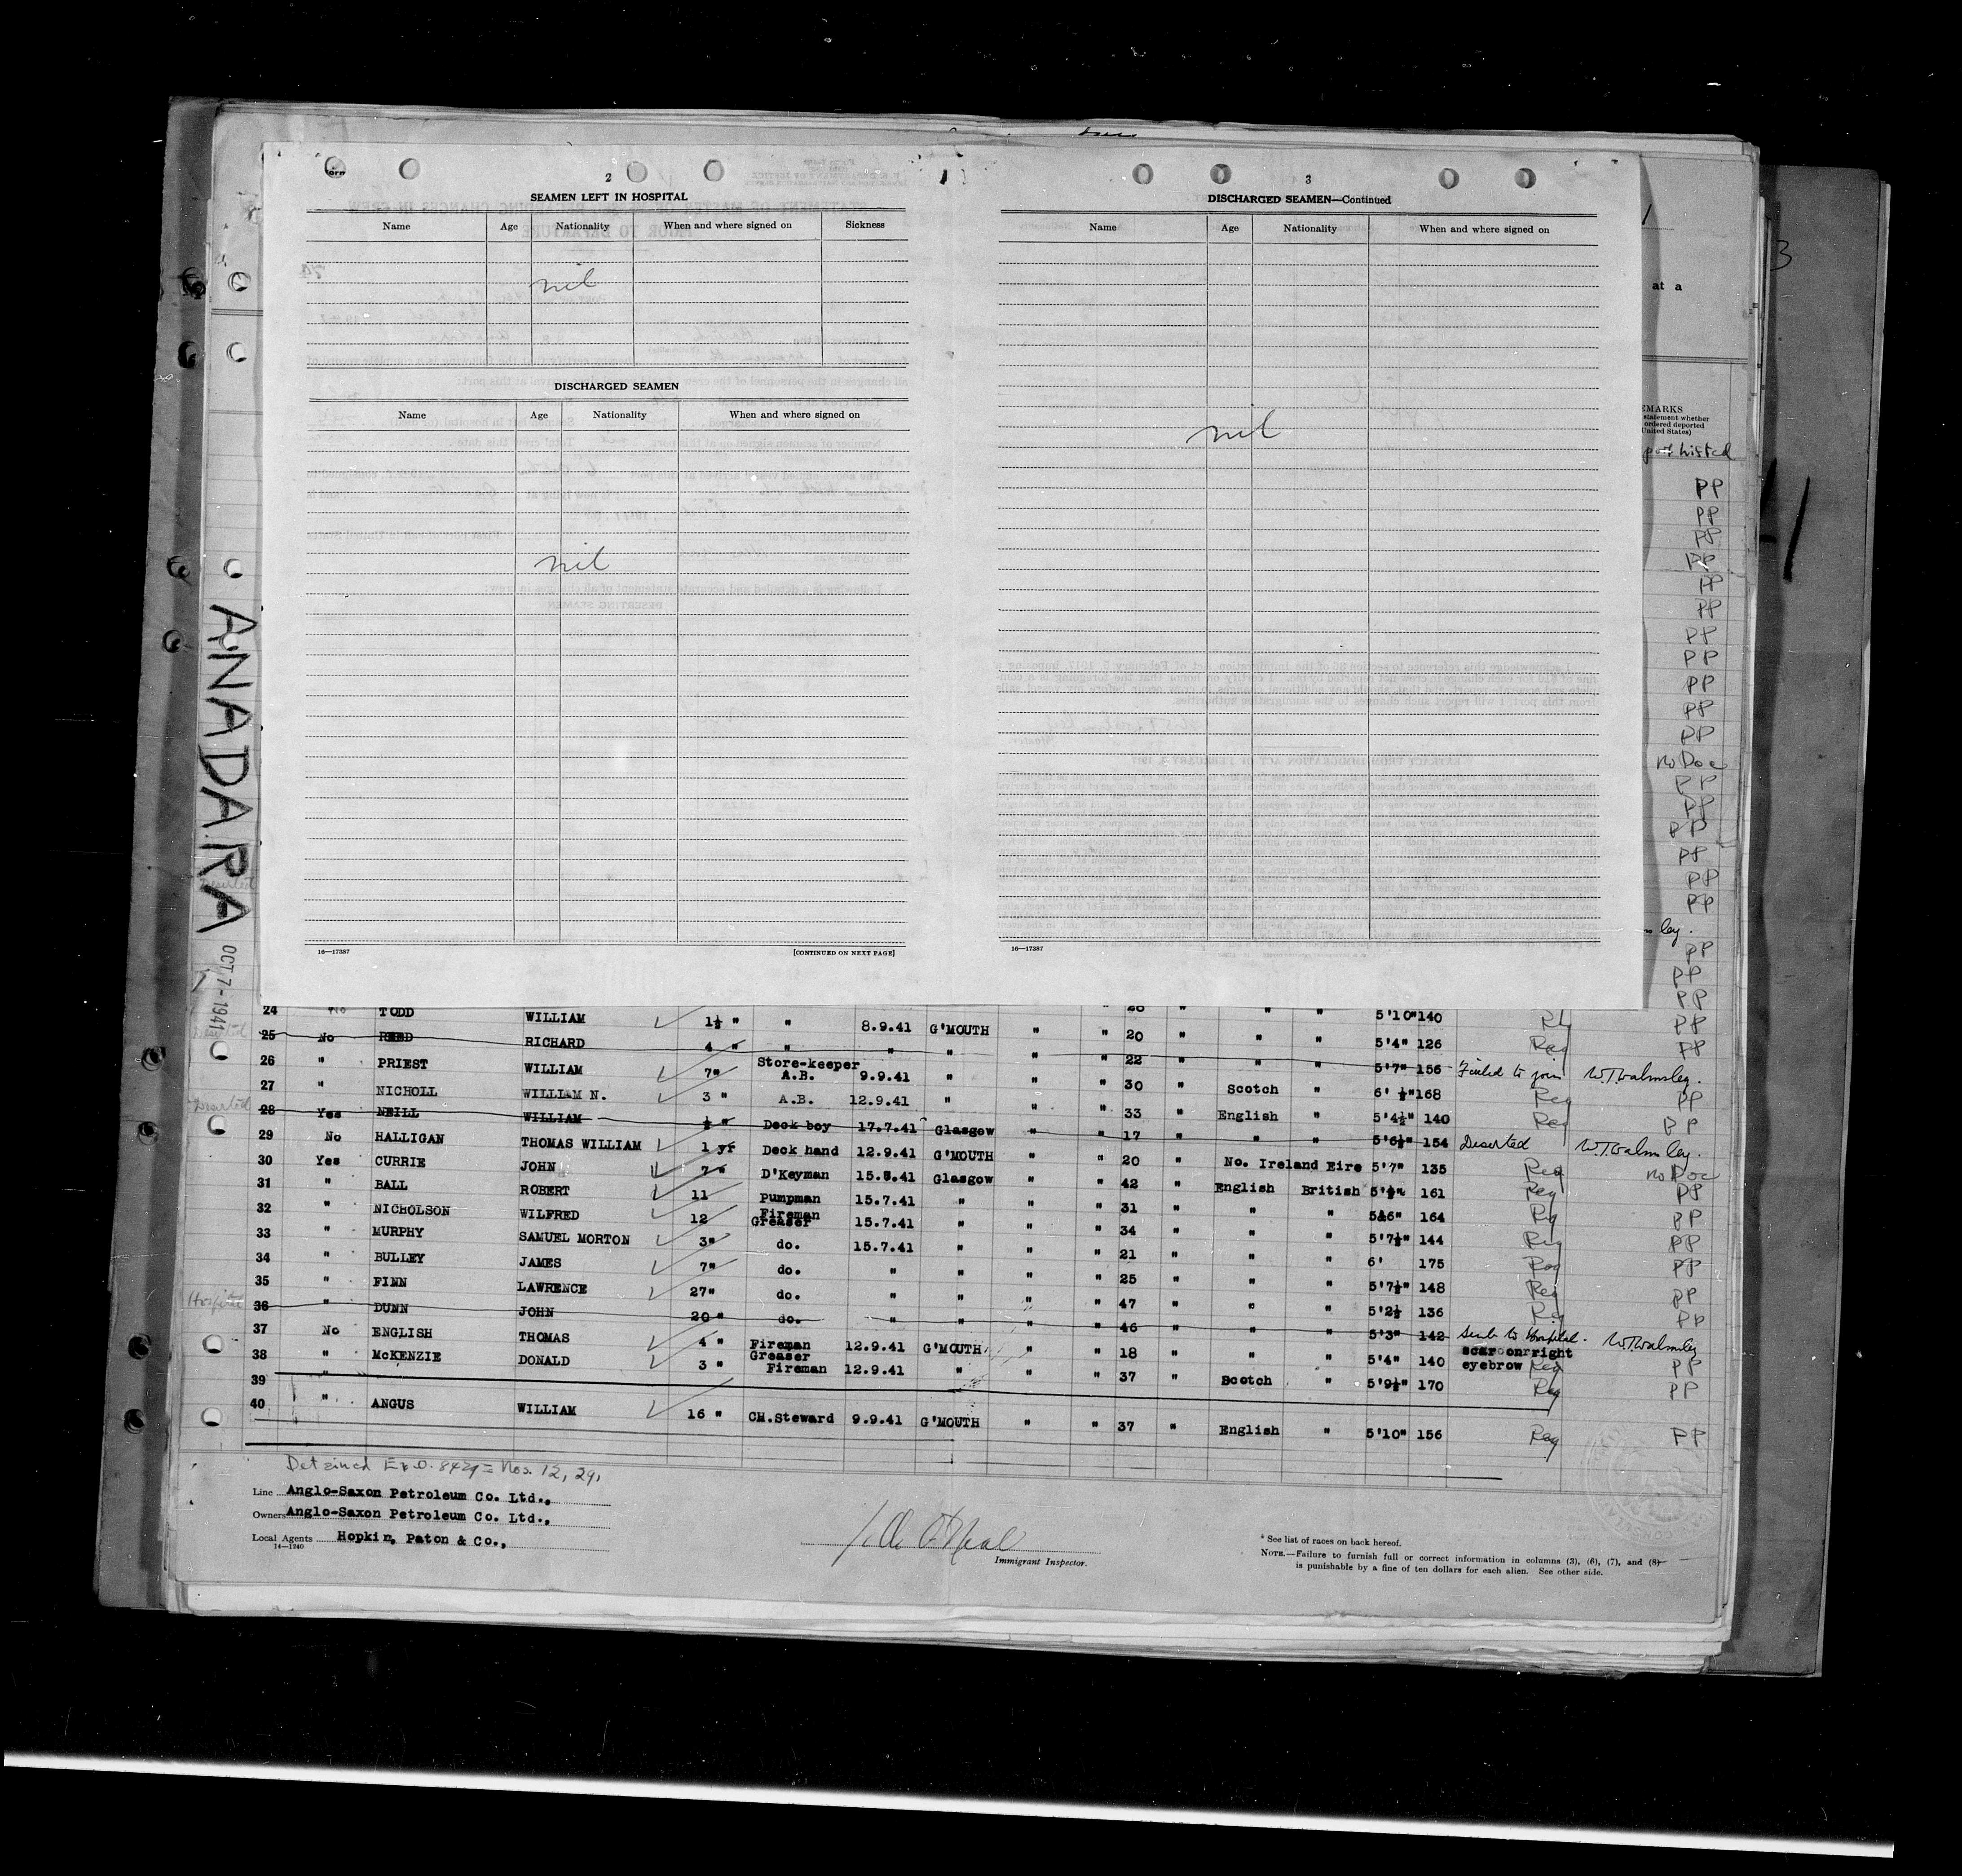 2
SEAMEN LEFT IN HOSPITAL
Name Age Nationality When and where signed on Sickness
nil
DISCHARGED SEAMEN
Name Age Nationality When and where signed on
nil
16—17387 [CONTINUED ON NEXT PAGE]
3
DISCHARGED SEAMEN—Continued
Name Age Nationality When and where signed on
nil
16—17387
at a
statement whether
ordered deported
United States)
PP
PP
PP
PP
PP
PP
PP
PP
PP
PP
PP
No Doc
PP
PP
PP
PP
PP
PP
ley.
PP
PP
PP
ANADARA
OCT 7-1941
24 No TODD WILLIAM 1½ " " 8.9.41 G'MOUTH " " 20 " " " 5'10" 140 PP
25 No REED RICHARD 4 " " " " " " 20 " " " 5'4" 126 Reg PP
26 " PRIEST WILLIAM 7" Store-keeper A.B. 9.9.41 " " " 22 " " " 5'7" 156 Failed to join W.T.Walmsley.
27 " NICHOLL WILLIAM N. 3 " A.B. 12.9.41 " " " 30 " Scotch " 6' ½" 168 Reg PP
Deserted 28 Yes NEILL WILLIAM ½ " Deck boy 17.7.41 Glasgow " " 33 " English " 5'4½" 140 Reg PP
29 No HALLIGAN THOMAS WILLIAM 1 yr Deck hand 12.9.41 G'MOUTH " " 17 " " " 5'6½" 154 Deserted W.T.Walmsley.
30 Yes CURRIE JOHN 7" D'Keyman Glasgow " " 20 " No. Ireland Eire 5'7" 135 Reg No Doc
31 " BALL ROBERT 11 Pumpman 15.7.41 " " " 42 " English British 161 Reg PP
32 " NICHOLSON WILFRED 12 Fireman Greaser 15.7.41 " " " 31 " " " 164 Rg PP
33 " MURPHY SAMUEL MORTON 3" do. 15.7.41 " " " 34 " " " 5'7½" 144 Reg PP
34 " BULLEY JAMES 7" do. " " " " 21 " " " 6' 175 Reg PP
35 " FINN LAWRENCE 27" do. " " " " 25 " " " 5'7½" 148 Reg PP
Hospital 36 " DUNN JOHN 20 " do. " " " " 47 " " " 5'2½ 136 Reg PP
37 No ENGLISH THOMAS 4 " Fireman Greaser 12.9.41 G'MOUTH " " 46 " " " 5'3" 142 Sent to Hospital. W.T.Walmsley
38 " McKENZIE DONALD 3 " Fireman 12.9.41 " " " 18 " " " 5'4" 140 scar on right eyebrow Reg PP
39 " " 37 " Scotch " 5'9½" 170 Reg PP
40 " ANGUS WILLIAM 16 " CH.Steward 9.9.41 G'MOUTH " " 37 " English " 5'10" 156 Reg PP
Detained Ex.O. 8429 = Nos. 12, 29,
Line Anglo-Saxon Petroleum Co. Ltd.,
Owners Anglo-Saxon Petroleum Co. Ltd.,
Local Agents Hopkin, Paton & Co.,
14—1240
Immigrant Inspector.
* See list of races on back hereof.
NOTE.—Failure to furnish full or correct information in columns (3), (6), (7), and (8)
is punishable by a fine of ten dollars for each alien. See other side.